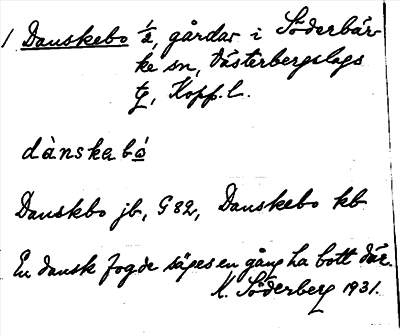 1 Danskebo ½, gårdar i Söderbär-
ke sn, Västerbergslags
tg, Kopp. l.
dànskebó
Danskbo jb, G82, Danskebo kb
En dansk fogde säges en gång ha bott där.
K. Söderberg 1931.